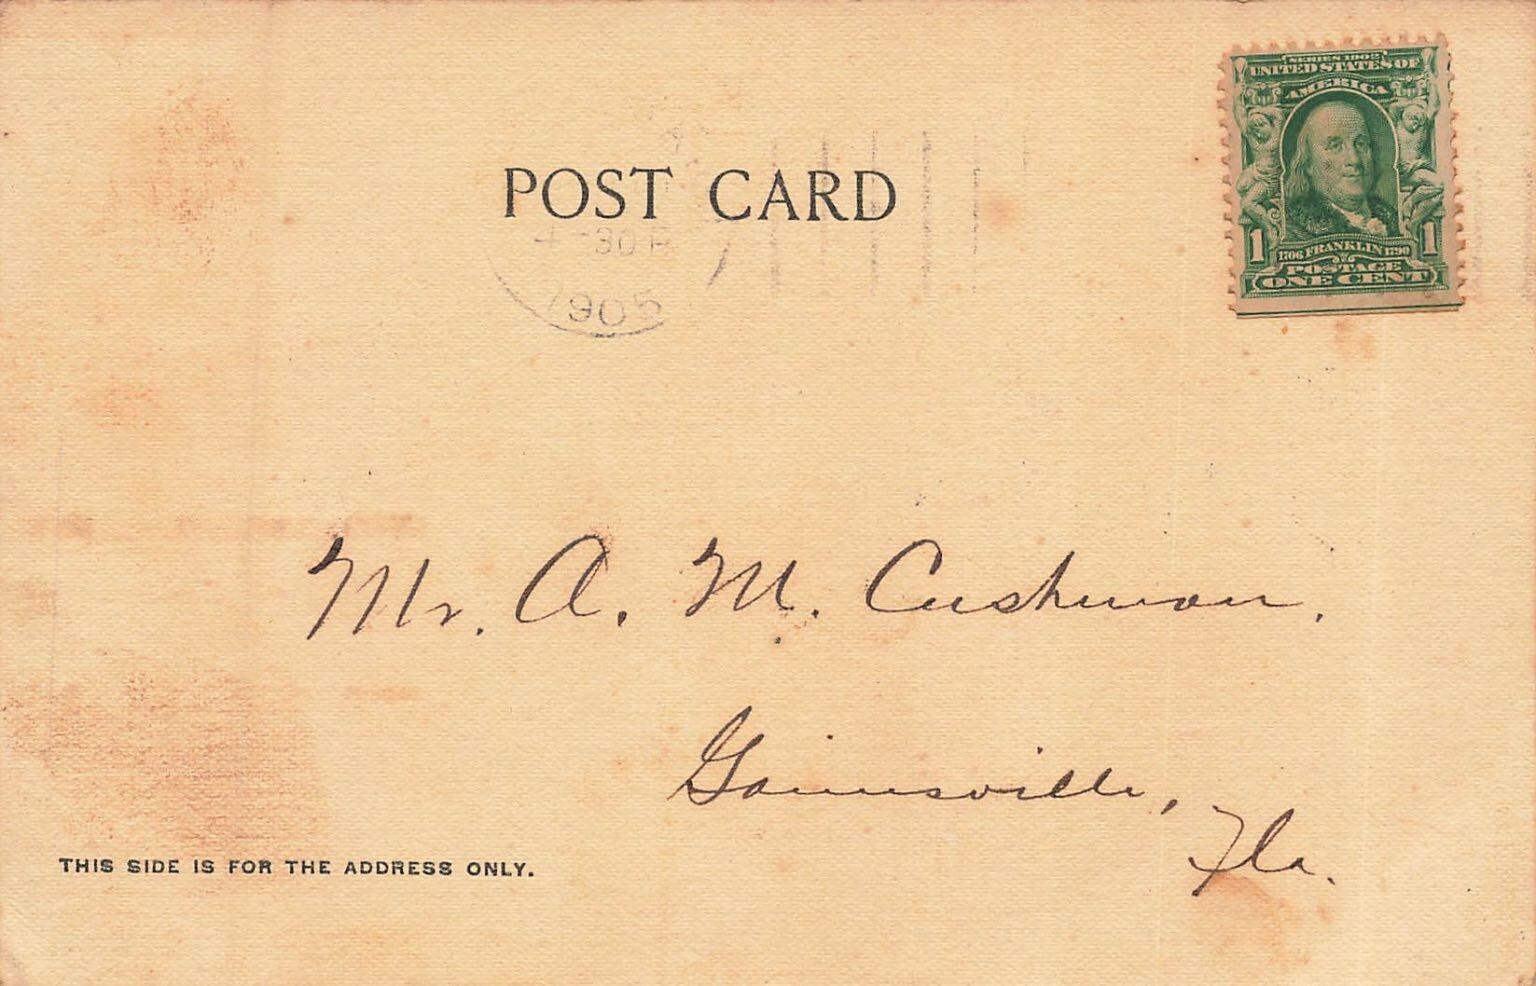 SERIES 1902
UNITED STATES OF
AMERICA
1 1706 FRANKLIN 1790 1
POSTAGE
ONE CENT
POST CARD
4-30 P
1905
Mr. A. M. Cushman.
Gainesville,
Fla.
THIS SIDE IS FOR THE ADDRESS ONLY.